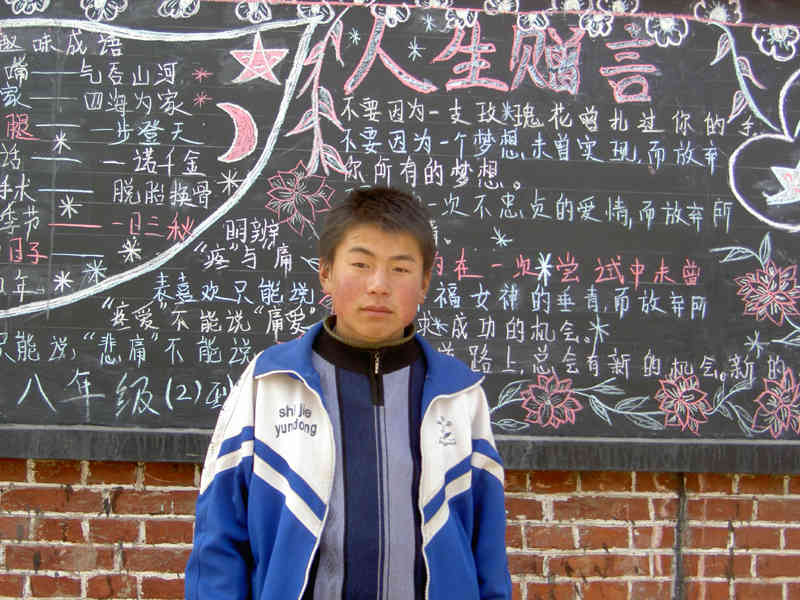 趣味成语
嘴——气吞山河
家——四海为家
腿——一步登天
话——一诺千金
——脱胎换骨
季节——一日三秋
日子——
明辨
"疼"与"痛
表喜欢只能说
"疼爱"不能说"痛爱"
只能说,"悲痛"不能说
八年级(2)
人生赠言
不要因为一支玫瑰花曾扎过你的手
不要因为一个梦想未曾实现,而放弃
你所有的梦想。
一次不忠贞的爱情,而放弃所
在一次尝试中未曾
福女神的垂青,而放弃所
成功的机会。
道路上,总会有新的机会。新的
shi jie
yundong